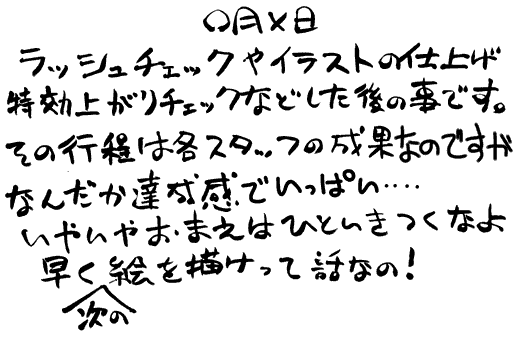 ○月×日
ラッシュチェックやイラストの仕上げ
特効上がりチェックなどした後の事です。
その行程は各スタッフの成果なのですが
なんだか達成感でいっぱい‥‥
いやいやおまえはひといきつくなよ
早く絵を描けって話なの!
次の